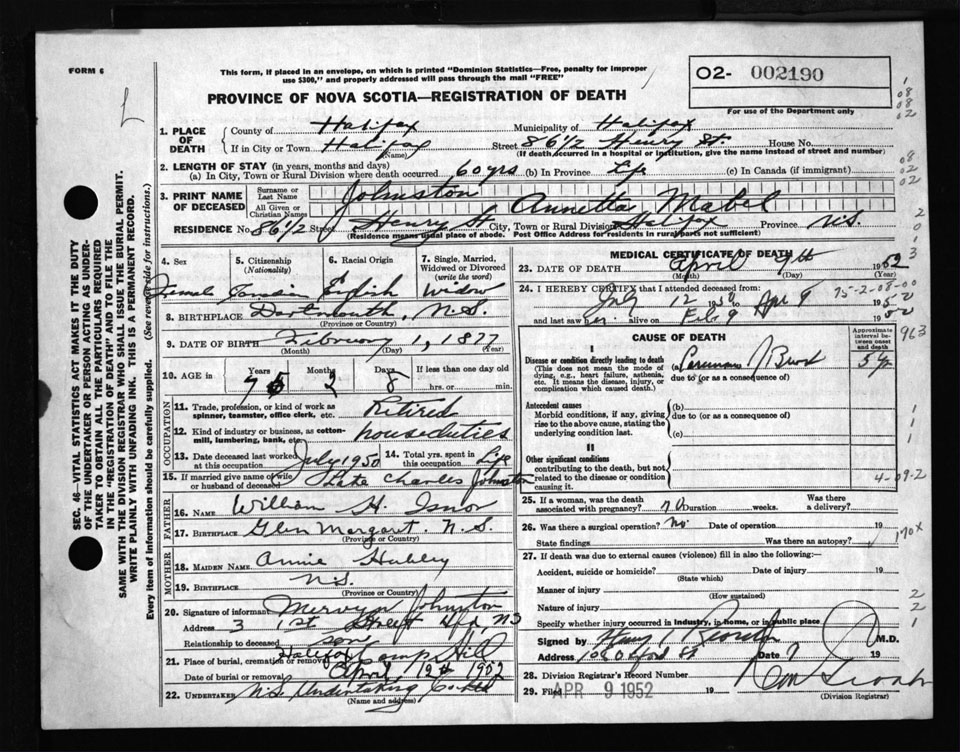 FORM 6
This form, if placed in an envelope, on which is printed "Dominion Statistics—Free, penalty for improper
use $300," and properly addressed will pass through the mail "FREE"
02- 002190
For use of the Department only
PROVINCE OF NOVA SCOTIA—REGISTRATION OF DEATH
1. PLACE OF DEATH
County of Halifax Municipality of Halifax
If in City or Town Halifax (Name) Street 86 1/2 Henry St House No.
(If death occurred in a hospital or institution, give the name instead of street and number)
2. LENGTH OF STAY (in years, months and days)
(a) In City, Town or Rural Division where death occurred 60 yrs (b) In Province Life (c) In Canada (if immigrant)
3. PRINT NAME OF DECEASED
Surname or Last Name Johnston
All Given or Christian Names Annetta Mabel
RESIDENCE No. 86 1/2 Street Henry St City, Town or Rural Division Halifax Province N.S.
(Residence means usual place of abode. Post Office Address for residents in rural parts not sufficient)
4. Sex
Female
5. Citizenship (Nationality)
Canadian
6. Racial Origin
English
7. Single, Married, Widowed or Divorced (write the word)
Widow
8. BIRTHPLACE Dartmouth, N.S.
(Province or Country)
9. DATE OF BIRTH February 1, 1877
(Month) (Day) (Year)
10. AGE in Years Months Days If less than one day
75 2 8 hrs. or min.
OCCUPATION
11. Trade, profession, or kind of work as spinner, teamster, office clerk, etc. Retired
12. Kind of industry or business, as cotton-mill, lumbering, bank, etc. houseduties
13. Date deceased last worked at this occupation July 1950
14. Total yrs. spent in this occupation Life
15. If married give name of wife or husband of deceased Late Charles Johnston
FATHER
16. NAME William H. Isnor
17. BIRTHPLACE Glen Margaret. N.S.
(Province or Country)
MOTHER
18. MAIDEN NAME Annie Hubley
19. BIRTHPLACE N.S.
(Province or Country)
20. Signature of informant Mervyn Johnston
Address 3 1st Street Hfx NS
Relationship to deceased son
21. Place of burial, cremation or removal Halifax Camp Hill
Date of burial or removal April 12th 1952
22. UNDERTAKER N.S. Undertaking Co Ltd
(Name and address)
MEDICAL CERTIFICATE OF DEATH
23. DATE OF DEATH April 9th 1952
24. I HEREBY CERTIFY that I attended deceased from:
July 12 1950 to Apr 9 1952
and last saw her alive on Feb 9 1952
75-2-08-00
CAUSE OF DEATH
Approximate interval between onset and death
I
Disease or condition directly leading to death
(This does not mean the mode of dying, e.g., heart failure, asthenia, etc. It means the disease, injury, or complication which caused death.)
5 yr
due to (or as a consequence of)
Antecedent causes
Morbid conditions, if any, giving rise to the above cause, stating the underlying condition last.
(b)
due to (or as a consequence of)
(c)
II
Other significant conditions
contributing to the death, but not related to the disease or condition causing it.
25. If a woman, was the death associated with pregnancy? no Duration weeks. Was there a delivery?
26. Was there surgical operation? no. Date of operation 19
State findings Was there an autopsy?
27. If death was due to external causes (violence) fill in also the following:—
Accident, suicide or homicide? Date of injury 19
(State which)
Manner of injury
(How sustained)
Nature of injury
Specify whether injury occurred in industry, in home, or in public place
Signed by M.D.
Address 102 Oxford St Date 9 19
28. Division Registrar's Record Number
29. Filed APR 9 1952 19
(Division Registrar)
SEC. 46—VITAL STATISTICS ACT MAKES IT THE DUTY
OF THE UNDERTAKER OR PERSON ACTING AS UNDER-
TAKER TO OBTAIN ALL THE PARTICULARS REQUIRED
IN THE "REGISTRATION OF DEATH" AND TO FILE THE
SAME WITH THE DIVISION REGISTRAR WHO SHALL ISSUE THE BURIAL PERMIT.
WRITE PLAINLY WITH UNFADING INK. THIS IS A PERMANENT RECORD.
Every item of information should be carefully supplied. (See reverse side for instructions.)
963
4-09-2
170X